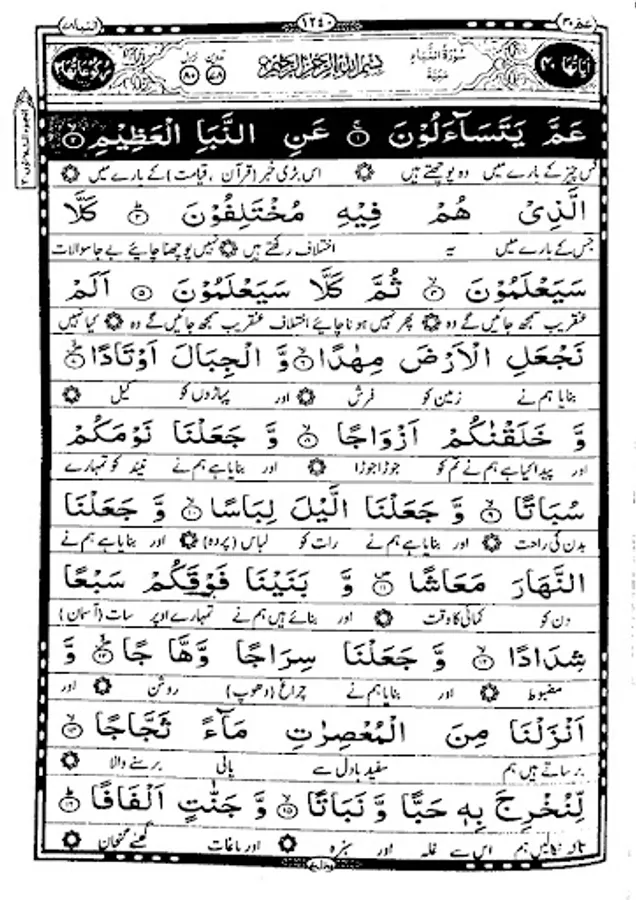 النبا ٧٨ ١٢٤٠ عم ٣٠
اٰیَاتُهَا ٤٠ سُوْرَةُ النَّبَاِ مَكِّيَّةٌ بِسْمِ اللهِ الرَّحْمٰنِ الرَّحِيْمِ رُكُوْعَاتُهَا ٢
عَمَّ يَتَسَآءَلُوْنَ ۝١ عَنِ النَّبَاِ الْعَظِيْمِ ۝٢
کس چیز کے بارے میں وہ پوچھتے ہیں ۞ اس بڑی خبر (قرآن ، قیامت) کے بارے میں ۞
الَّذِیْ هُمْ فِيْهِ مُخْتَلِفُوْنَ ۝٣ كَلَّا
جس کے بارے میں یہ اختلاف رکھتے ہیں ۞ نہیں پوچھنا چاہئے بے جا سوالات
سَيَعْلَمُوْنَ ۝٤ ثُمَّ كَلَّا سَيَعْلَمُوْنَ ۝٥ اَلَمْ
عنقریب سمجھ جائیں گے وہ ۞ پھر نہیں ہونا چاہئے اختلاف عنقریب سمجھ جائیں گے وہ ۞ کیا نہیں
نَجْعَلِ الْاَرْضَ مِهٰدًا ۝٦ وَّ الْجِبَالَ اَوْتَادًا ۝٧
بنایا ہم نے زمین کو فرش ۞ اور پہاڑوں کو کیل ۞
وَّ خَلَقْنٰكُمْ اَزْوَاجًا ۝٨ وَّ جَعَلْنَا نَوْمَكُمْ
اور پیدا کیا ہے ہم نے تم کو جوڑا جوڑا ۞ اور بنایا ہے ہم نے نیند کو تمہارے
سُبَاتًا ۝٩ وَّ جَعَلْنَا الَّيْلَ لِبَاسًا ۝١٠ وَّ جَعَلْنَا
بدن کی راحت ۞ اور بنایا ہے ہم نے رات کو لباس (پردہ) ۞ اور بنایا ہے ہم نے
النَّهَارَ مَعَاشًا ۝١١ وَّ بَنَيْنَا فَوْقَكُمْ سَبْعًا
دن کو کمائی کا وقت ۞ اور بنائے ہیں ہم نے تمہارے اوپر سات (آسمان)
شِدَادًا ۝١٢ وَّ جَعَلْنَا سِرَاجًا وَّهَّاجًا ۝١٣ وَّ
مضبوط ۞ اور بنایا ہم نے چراغ (دھوپ) روشن ۞ اور
اَنْزَلْنَا مِنَ الْمُعْصِرٰتِ مَآءً ثَجَّاجًا ۝١٤
برساتے ہیں ہم سفید بادل سے پانی برسنے والا ۞
لِّنُخْرِجَ بِهٖ حَبًّا وَّ نَبَاتًا ۝١٥ وَّ جَنّٰتٍ اَلْفَافًا ۝١٦
تاکہ نکالیں ہم اس سے غلہ اور سبزہ ۞ اور باغات گھنے گنجان ۞